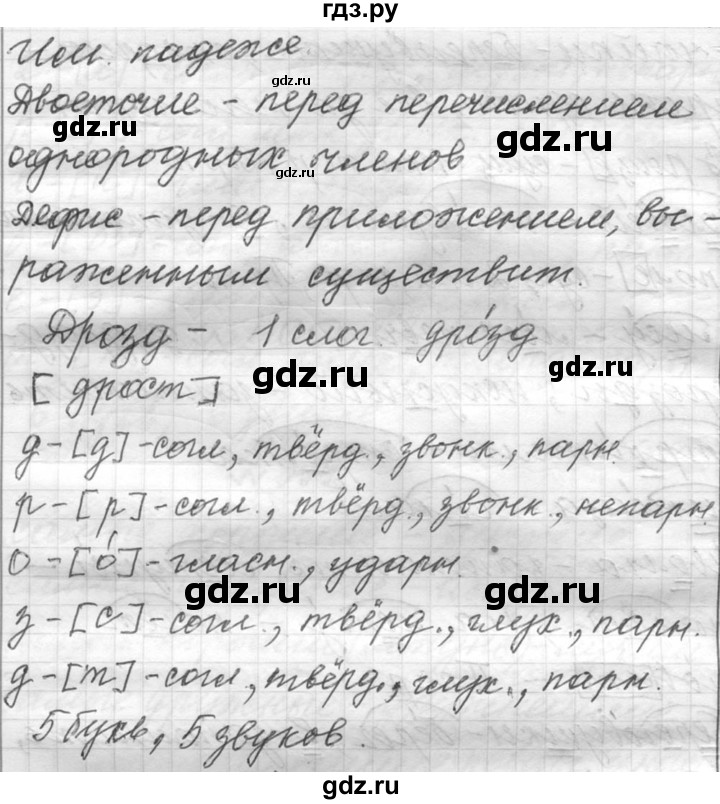 гдз.ру
Им. падеже.
gdz.ru
Двоеточие - перед перечислением
gdz.ru
gdz.ru
однородных членов
gdz.ru
Дефис - перед приложением, вы-
раженным существит.
Дрозд - 1 слог. дро́зд
gdz.ru
gdz.ru
[дрост]
д - [д] - согл., твёрд., звонк., парн.
gdz.ru
gdz.ru
р - [р] - согл., твёрд., звонк., непарн.
о - [о́] - гласн., ударн.
gdz.ru
gdz.ru
з - [с] - согл., твёрд., глух., парн.
д - [т] - согл., твёрд., глух., парн.
5 букв, 5 звуков.
gdz.ru